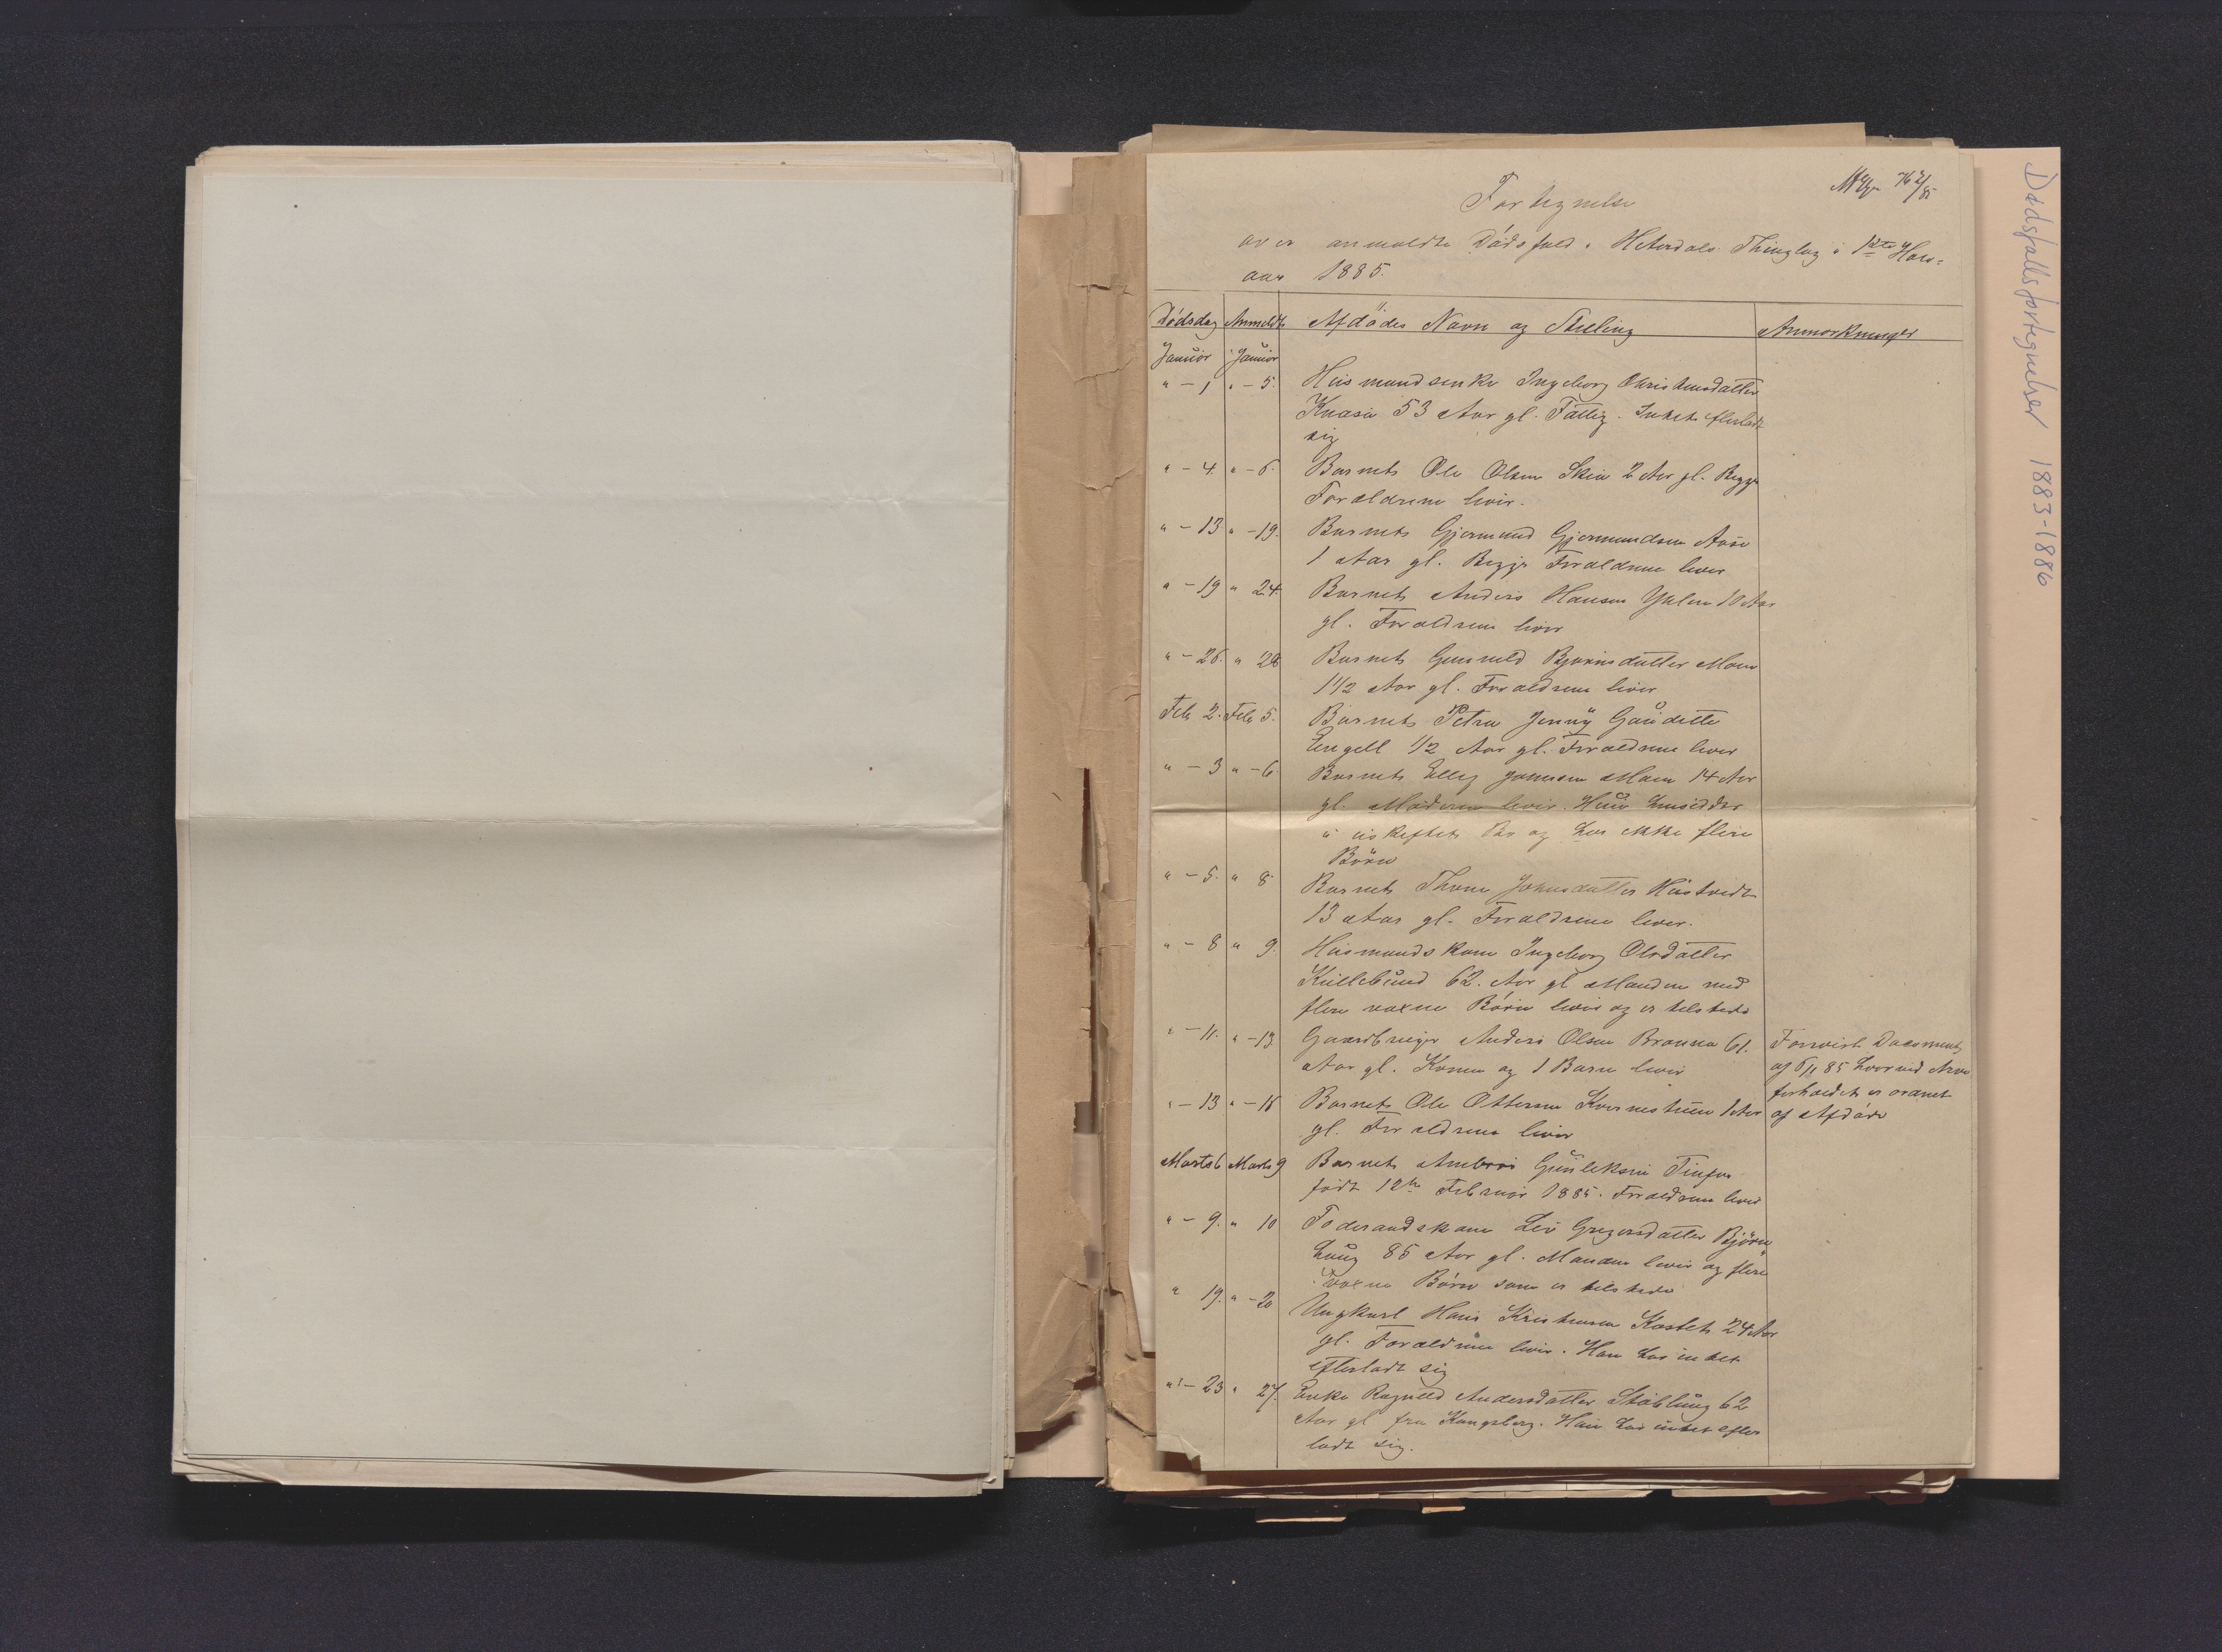 Fortegnelse
over anmeldte Dödsfald i Hiterdals Thinglag i 1ste Halv=
aar 1885.
Dödsdag Anmeldt Afdödes Navn og Stilling Anmærkninger
Januar Januar
" - 1 " - 5. Huusmandsenke Ingeborg Christensdatter
53 Aar gl. Fattig. Intet efterladt
sig
" - 4. " - 6. Barnet Ole Olsen Skeie 2 Aar gl. Begge
Forældrene lever.
" - 13 " - 19. Barnet Gjermund Gjermundsen Aase
1 Aar gl. Begge Forældrene lever
" - 19 " 24. Barnet Anders Hansen 10 Aar
gl. Forældrene lever
" - 26. " 28 Barnet Gunnild Bjørnsdatter Moen
1 1/2 Aar gl. Forældrene lever
Feb 2. Feb 5. Barnet Petra Jenny
Engell 1/2 Aar gl. Forældrene lever
" - 3 " - 6. Barnet Ellef Moen 14 Aar
gl. Moderen lever. Hun hensidder
i uskiftet Bo og har ikke flere
Börn
" - 5. " 8 Barnet Thone Johnsdatter Haatvedt
13 Aar gl. Forældrene lever.
" - 8 " 9. Huusmandskone Ingeborg Olsdatter
62. Aar gl Manden med
flere voxne Börn lever og er tilstede
" - 11. " - 13 Gaardbruger Anders Olsen 61.
Aar gl. Konen og 1 Barn lever
Forevist Document
af 6/11 85 hvorved Arve
forholdet er ordnet
af Afdöde
" - 13 " - 18 Barnet Ole Ottersen 1 Aar
gl. Forældrene lever
Marts 6 Marts 9 Barnet Gunleksen Tinfos
födt 12te Februar 1885. Forældrene lever
" - 9. " 10 Föderaadskone Liv Gregersdatter Björn
haug 85 Aar gl. Manden lever og flere
voxne Börn som er tilstede
" 19. " - 20 Ungkarl Hans Kristensen Kastet 24 Aar
gl. Forældrene lever. Han har intet
efterladt sig
" - 23 " 27. Enke Ragnild Andersdatter 62
Aar gl fra Kongsberg. Hun har intet efter
ladt sig.
Dødsfallsfortegnelser 1883-1886